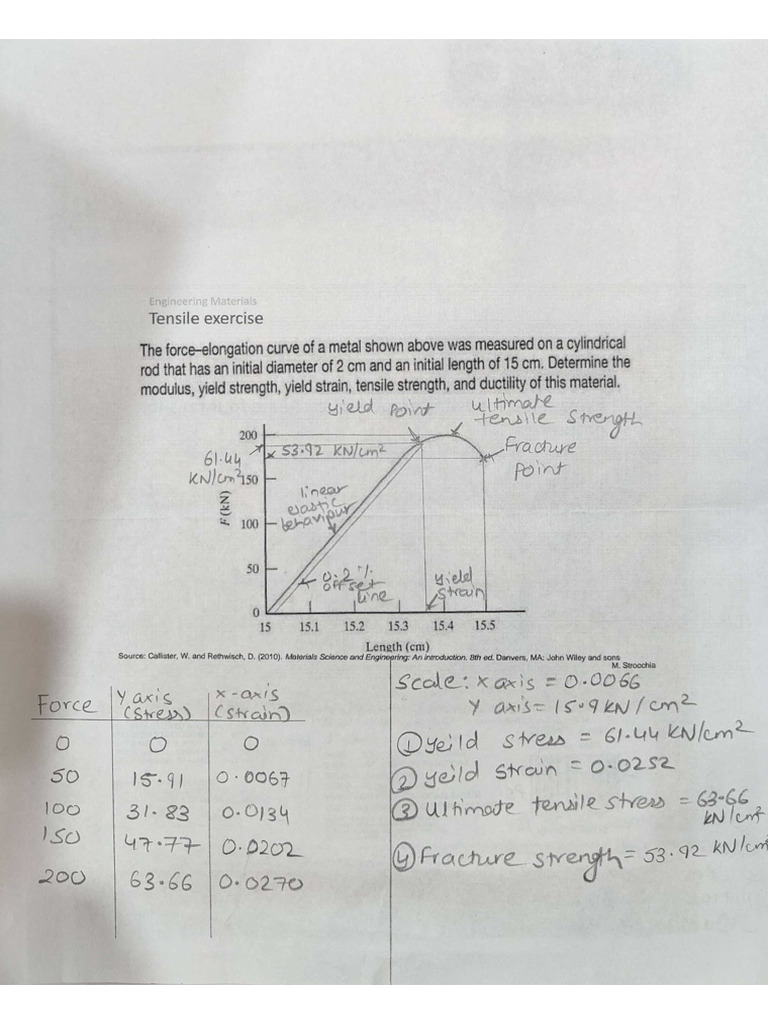 Engineering Materials
Tensile exercise
The force–elongation curve of a metal shown above was measured on a cylindrical
rod that has an initial diameter of 2 cm and an initial length of 15 cm. Determine the
modulus, yield strength, yield strain, tensile strength, and ductility of this material.
yield Point
ultimate
tensile strength
200
61.44
KN/cm²
53.92 KN/cm²
Fracture
Point
150
linear
elastic
behaviour
F (kN)
100
50
0.2 %
offset
line
yield
strain
0
15 15.1 15.2 15.3 15.4 15.5
Length (cm)
Source: Callister, W. and Rethwisch, D. (2010). Materials Science and Engineering: An introduction. 8th ed. Danvers, MA: John Wiley and sons
M. Strocchia
Force Y axis (stress) x-axis (strain)
0 0 0
50 15.91 0.0067
100 31.83 0.0134
150 47.77 0.0202
200 63.66 0.0270
Scale: x axis = 0.0066
Y axis = 15.9 KN/cm²
① yeild stress = 61.44 KN/cm²
② yeild strain = 0.0252
③ ultimate tensile stress = 63.66
KN/cm²
④ Fracture strength = 53.92 KN/cm